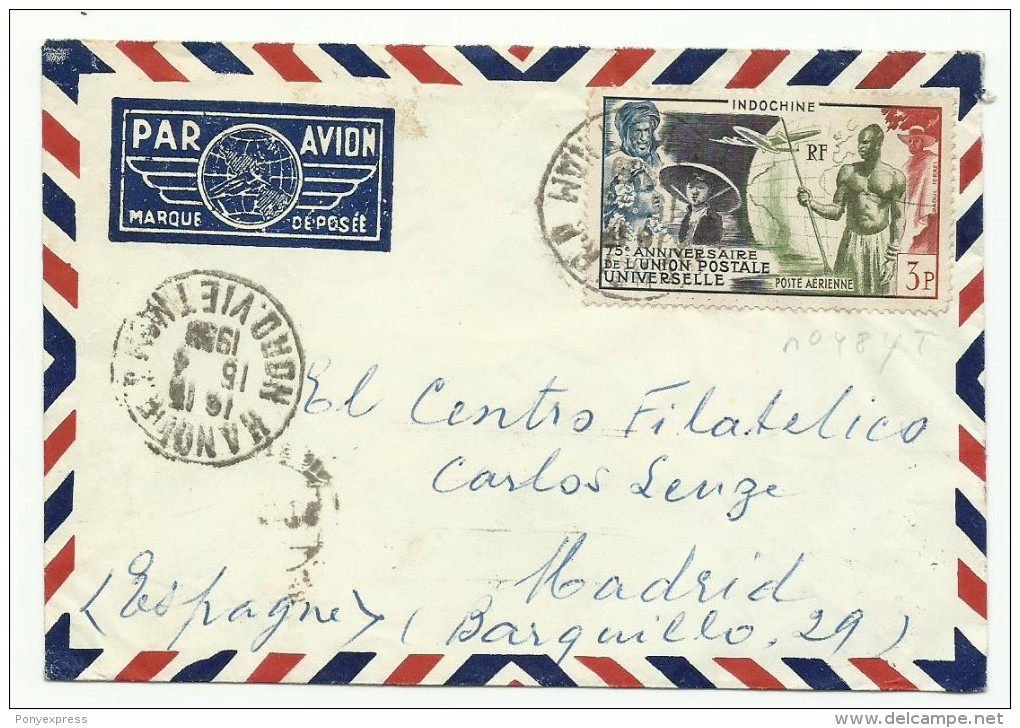 PAR AVION
MARQUE DÉPOSÉE
INDOCHINE
RF
RAOUL SERRES
75e ANNIVERSAIRE
DE L'UNION POSTALE
UNIVERSELLE
POSTE AÉRIENNE
3P
HANOI R.P.
NORD.VIETNAM
15
El Centro Filatelico
Carlos Lenze
Madrid
(Espagne) (Barquillo, 29)
Ponyexpress
delcampe.net